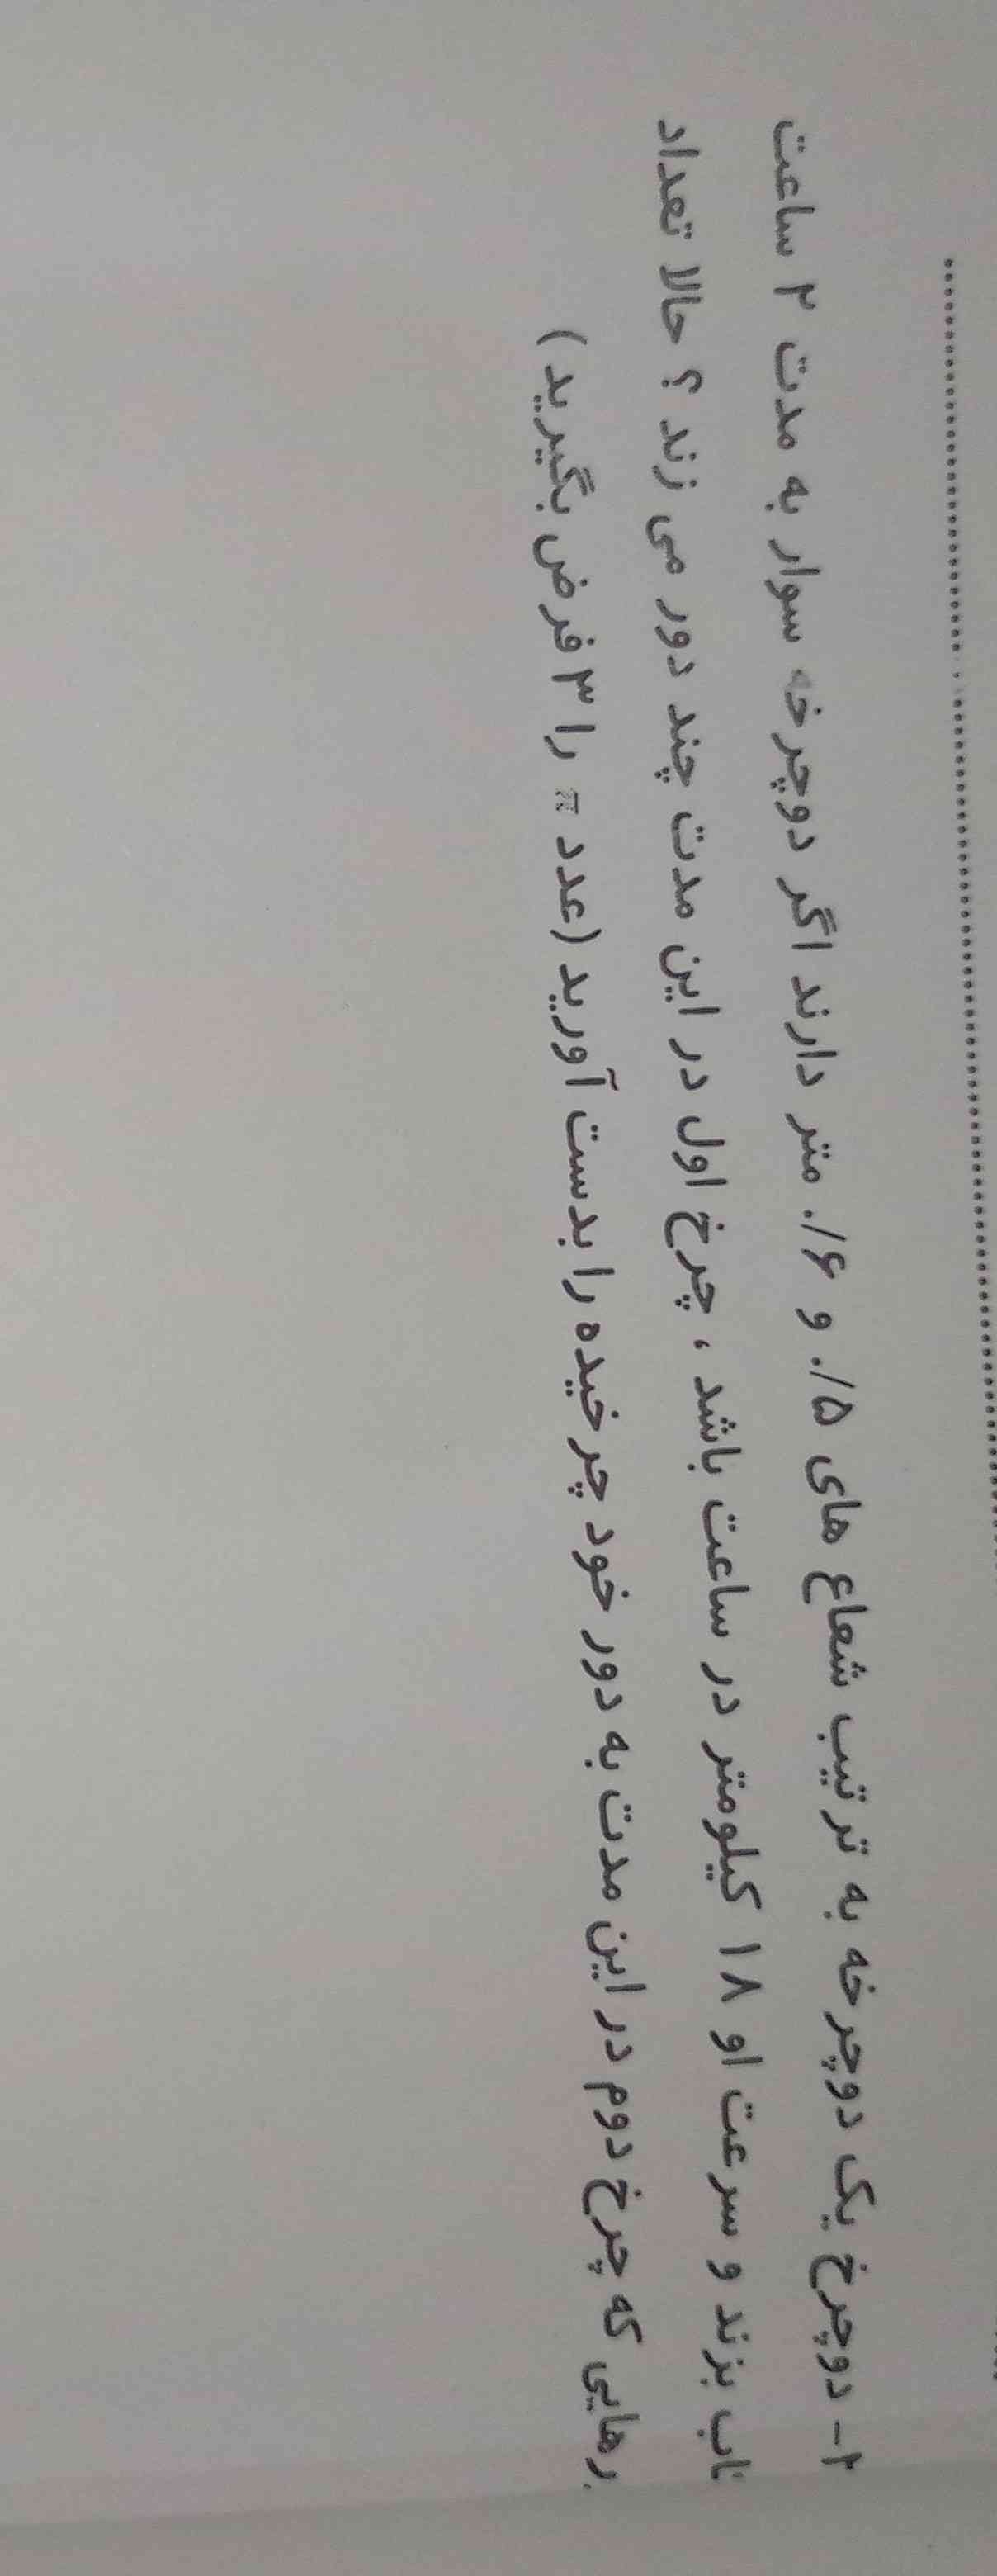 ۲- دوچرخ یک دوچرخه به ترتیب شعاع های ۵/. و ۶/. متر دارند اگر دوچرخه سوار به مدت ۲ ساعت
رکاب بزند و سرعت او ۱۸ کیلومتر در ساعت باشد ، چرخ اول در این مدت چند دور می زند ؟ حالا تعداد
دورهایی که چرخ دوم در این مدت به دور خود چرخیده را بدست آورید (عدد π را ۳ فرض بگیرید)